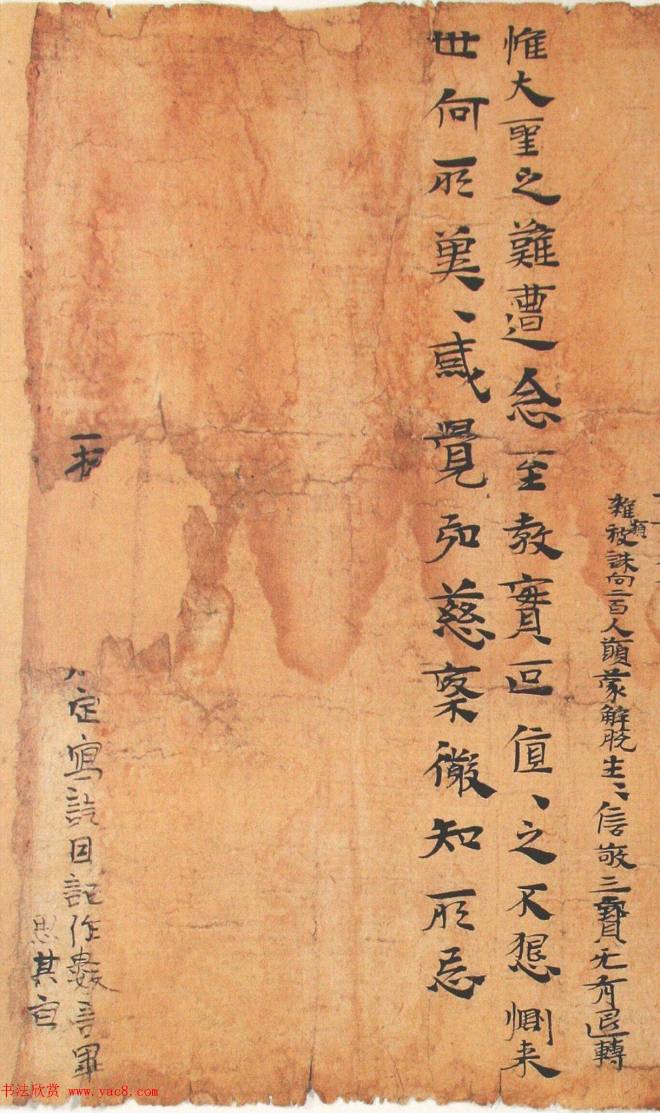 雜類被誅向二百人願蒙解脫生〻信敬三寶无有退轉
惟大聖之難遭念至教實叵值〻之不懇惻来
世何所兾〻感覺加慈稟徹知所忌
定寫訖因記作數言羅
思其
书法欣赏 www.yac8.com